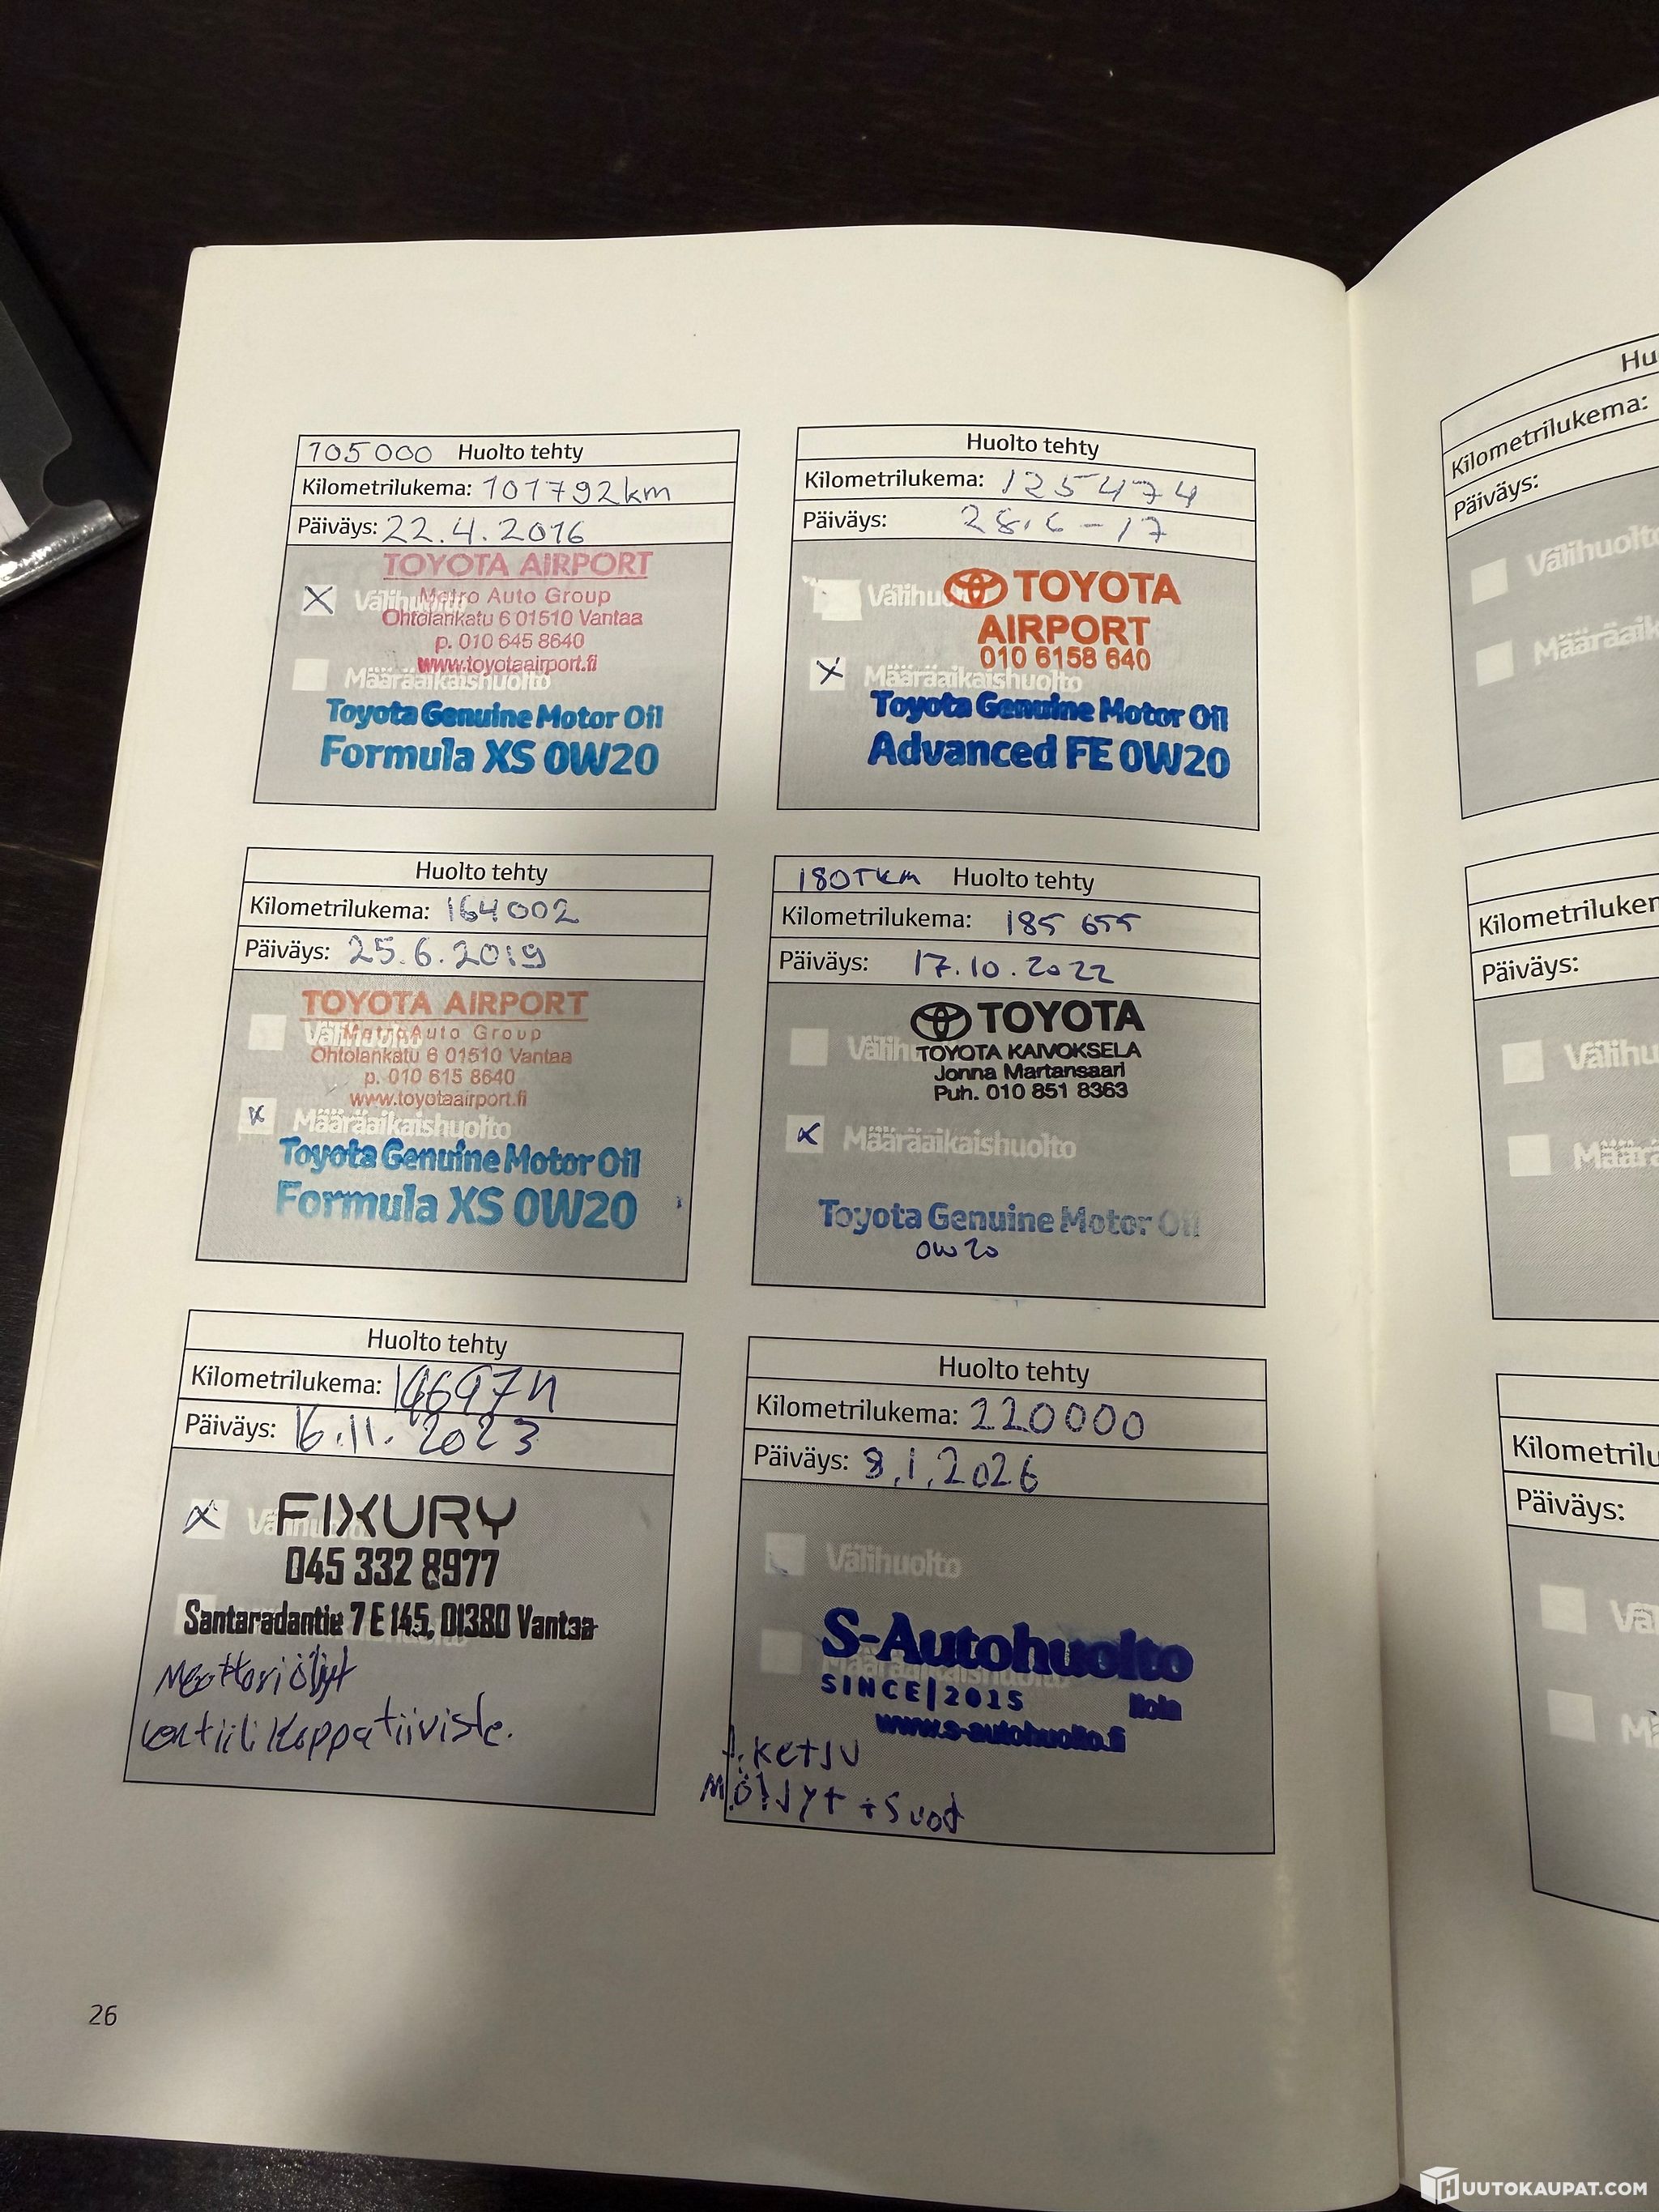 105000 Huolto tehty
Kilometrilukema: 101792km
Päiväys: 22.4.2016
TOYOTA AIRPORT
Välihuolto
Metro Auto Group
Ohtolankatu 6 01510 Vantaa
p. 010 645 8640
www.toyotaairport.fi
Määräaikaishuolto
Toyota Genuine Motor Oil
Formula XS 0W20
Huolto tehty
Kilometrilukema: 125474
Päiväys: 28.6-17
Välihuolto
TOYOTA
AIRPORT
010 6158 640
Määräaikaishuolto
Toyota Genuine Motor Oil
Advanced FE 0W20
Huolto tehty
Kilometrilukema: 164002
Päiväys: 25.6.2019
TOYOTA AIRPORT
Välihuolto
Metro Auto Group
Ohtolankatu 6 01510 Vantaa
p. 010 615 8640
www.toyotaairport.fi
Määräaikaishuolto
Toyota Genuine Motor Oil
Formula XS 0W20
180TKM Huolto tehty
Kilometrilukema: 185 655
Päiväys: 17.10.2022
TOYOTA
Välihuolto
TOYOTA KAIVOKSELA
Jonna Martansaari
Puh. 010 851 8363
Määräaikaishuolto
Toyota Genuine Motor Oil
0W20
Huolto tehty
Kilometrilukema:
Päiväys: 16.11.2023
FIXURY
045 332 8977
Santaradantie 7 E 145, 01380 Vantaa
Moottoriöljyt
venttiilikoppatiiviste.
Huolto tehty
Kilometrilukema: 220000
Päiväys: 8.1.2026
Välihuolto
S-Autohuolto
Määräaikaishuolto
SINCE|2015
www.s-autohuolto.fi
A.ketju
M.öljyt+suod
Hu
Kilometrilukema:
Päiväys:
Välihuolto
Määräaik
Kilometriluker
Päiväys:
Välihu
Määrä
Kilometrilu
Päiväys:
Vä
Mä
26
HUUTOKAUPAT.COM